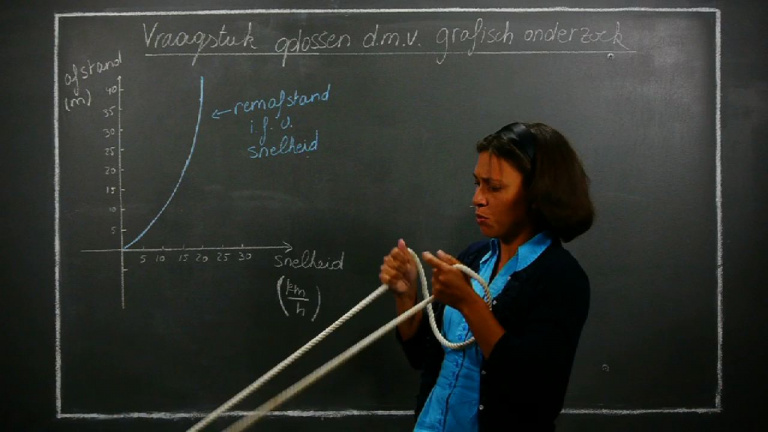 Vraagstuk oplossen d.m.v. grafisch onderzoek
afstand
(m)
40
35
30
25
20
15
10
5
remafstand
i.f.v.
snelheid
5 10 15 20 25 30
snelheid
(km/h)